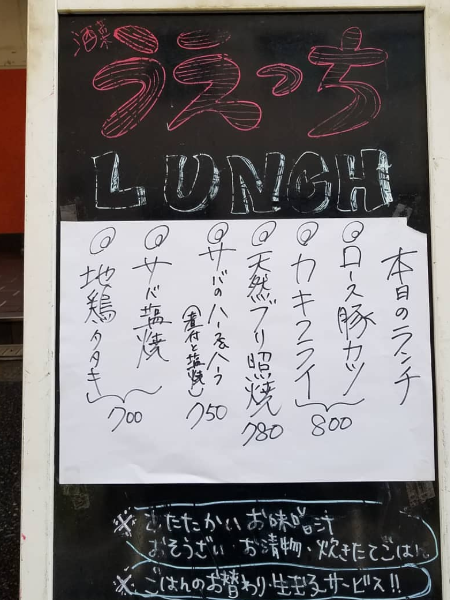 酒菜
うえっち
LUNCH
本日のランチ
◎ロース豚カツ
◎カキフライ
800
◎天然ブリ照焼
780
◎サバのハーフ&ハーフ
(煮付と塩焼)
750
◎サバ塩焼
◎地鶏タタキ
700
※あたたかいお味噌汁
おそうざい お漬物・炊きたてごはん
※ごはんのお替わり・生玉子サービス!!